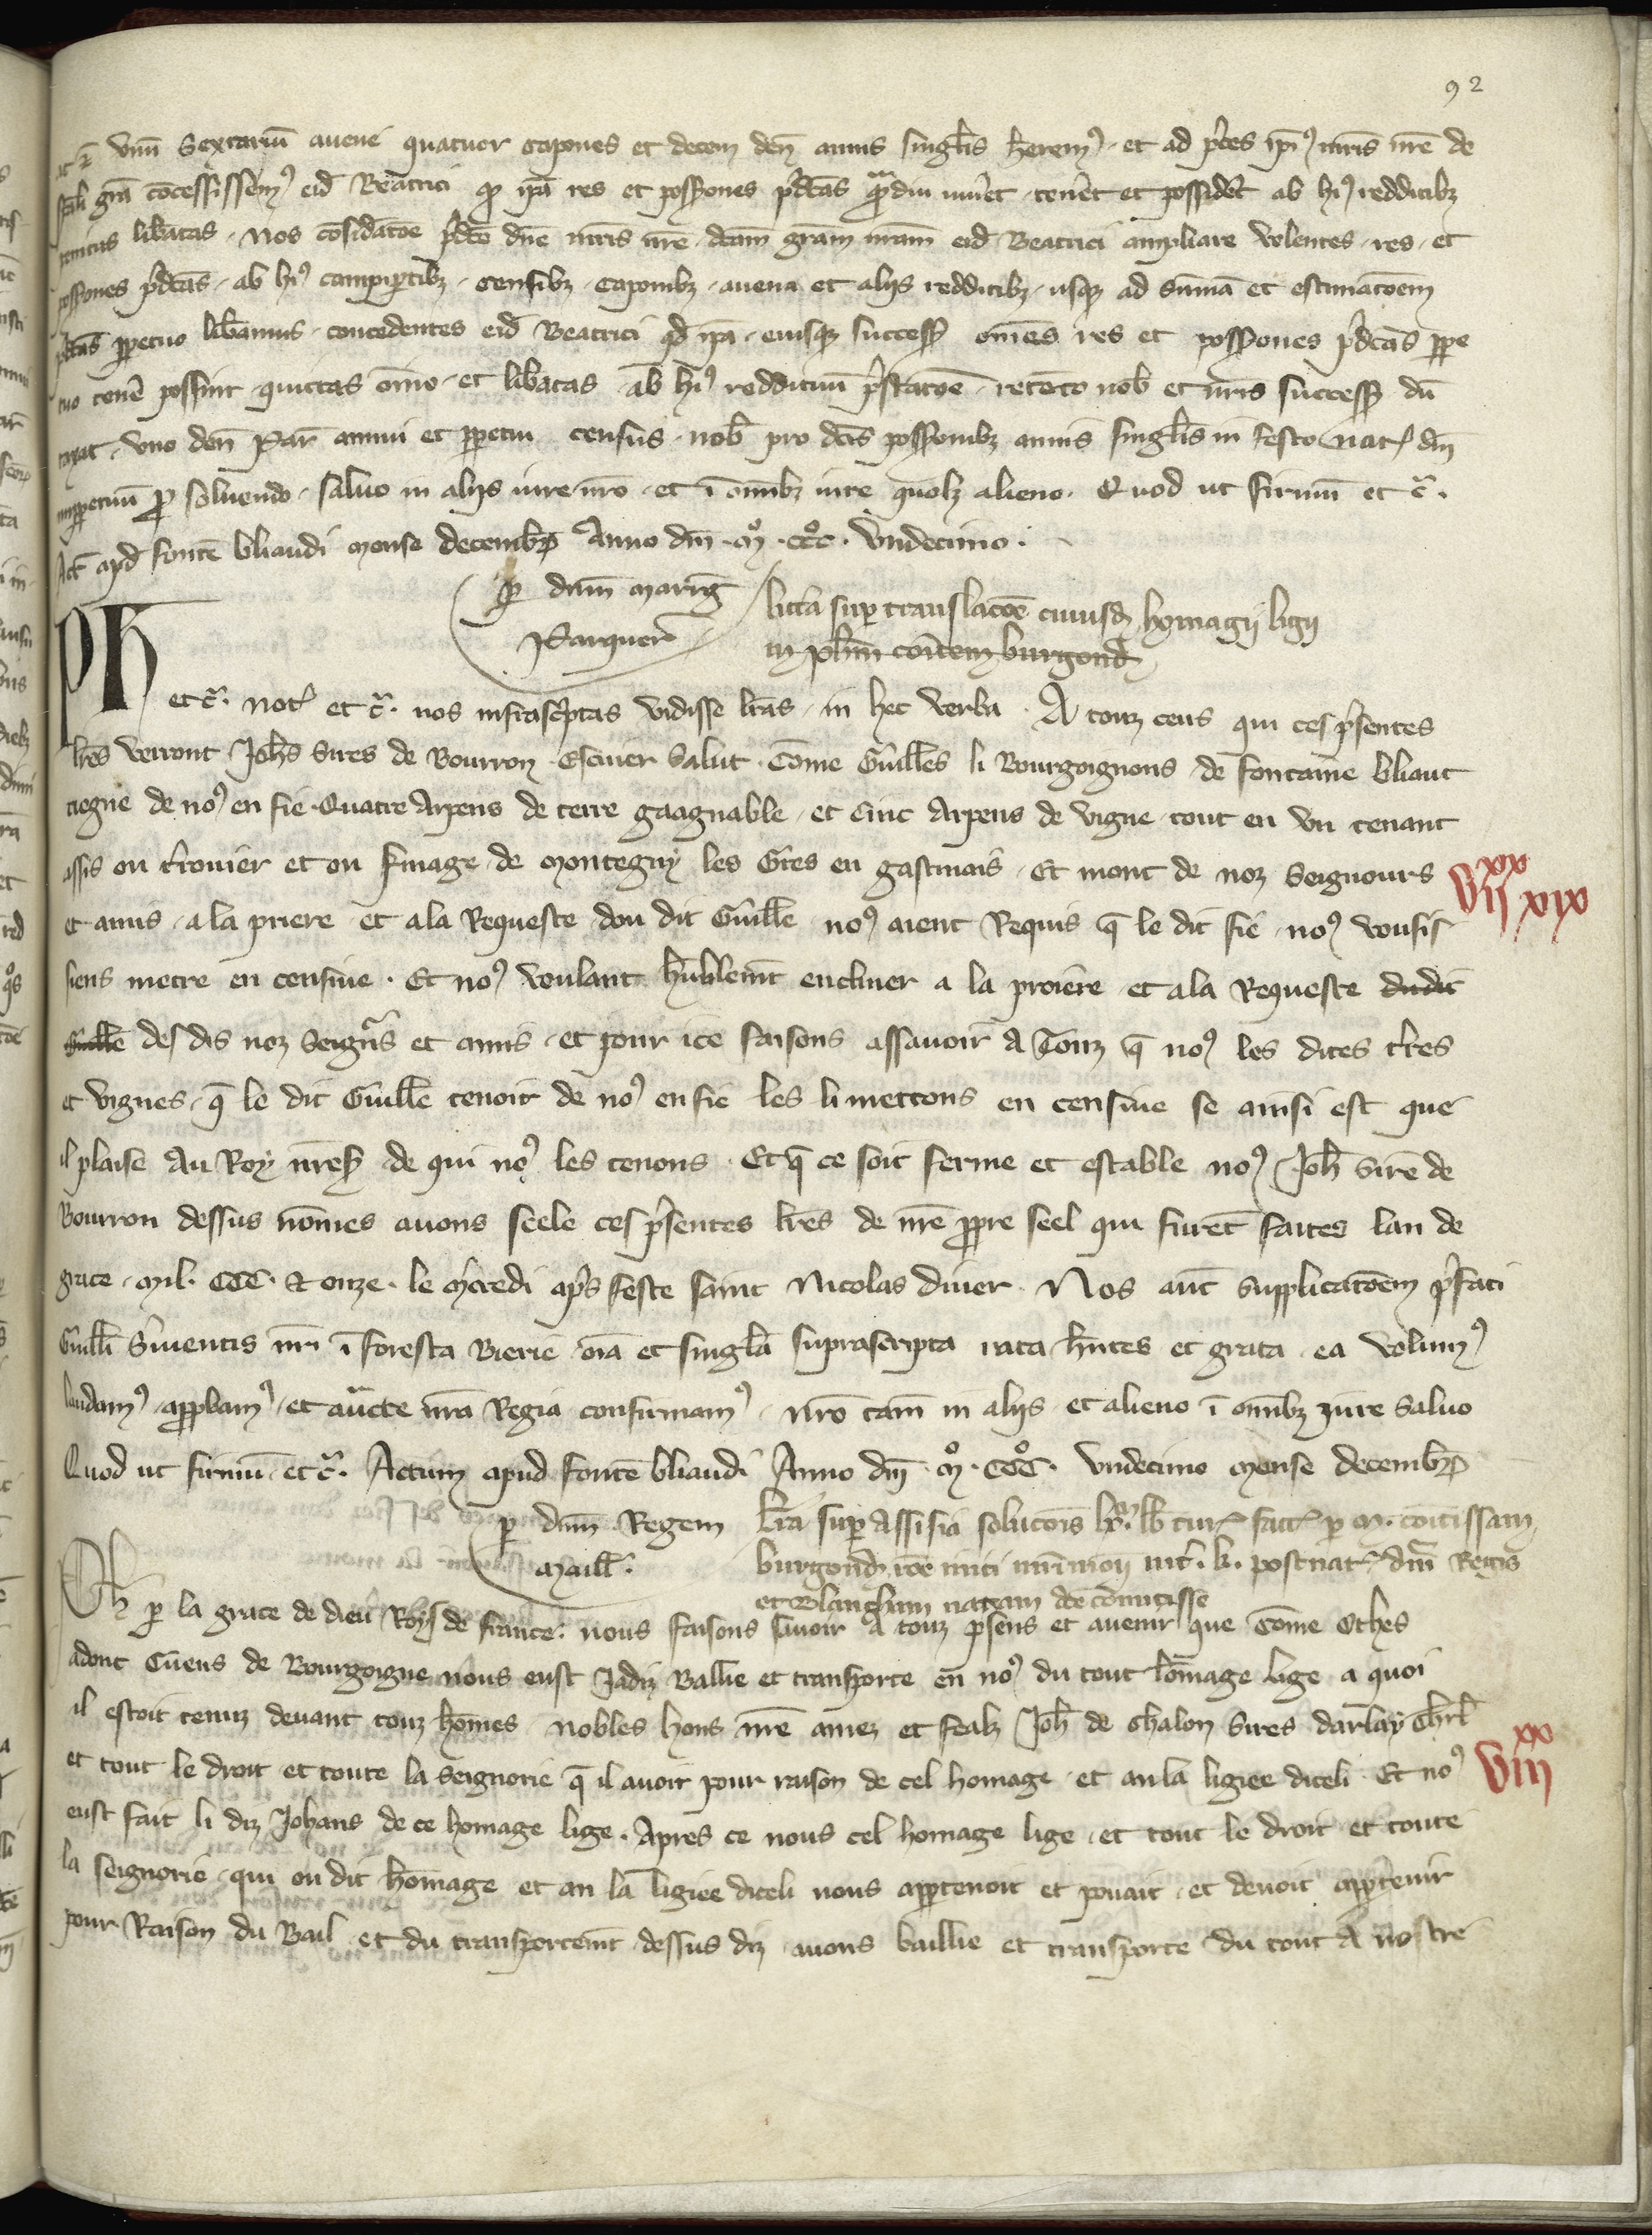 92
unu sextariu avene quatuor capones et decem den annis singlis herem9 et ad pces ipi9 mris nre de
grã cocessissem9 eid Beatrici qd ipa res et possiones pdcas qdiu viuet tenet et possidet ab hi9 redditibz
penitus libatas nos cosidatoe pdce dne mris nre dcam gram nram eid Beatrici ampliare volentes res et
possiones pdcas ab hi9 campiptibz censibz caponibz auena et aliis redditibz usqz ad sumã et estimacoem
pdcas ppetuo libamus concedentes eid Beatrici qd ipa eiusqz success omes res et possiones pdcas ppe
tuo tene possint quittas omio et libatas ab hi9 reddituu pstacoe reteto nob et nris success du
taxat uno den Par annui et ppetui census nob pro dcis possionibz annis singlis in festo Nat dni
imppetuu soluendo saluo in aliis iure nro et i omibz iure quolz alieno Quod ut firmu et c.
Act apd fonte bliaudi mense decembr Anno dni Mo CCCo undecimo
p dnm Marig
Parquer
littra sup translacoe cuiusd homagij ligij
in phm comitem burgond
Ph et c. not et c. nos infrascptas vidisse lras in hec verba A touz ceus qui ces psentes
lres verront Johs sires de Bourron Escuier Salut Come Guilles li Bourgoignons de fontaine bliaut
tiegne de no9 en fie Quatre Arpens de terre gaagnable et cinc Arpens de vigne tout en un tenant
assis ou trouier et ou finage de Montegny les Gres en gastinois Et mont de noz Seigneurs
VIIxx XIX
et amis a la priere et a la Requeste dou dit Guille no9 aient Requis q le dit fie no9 vousis
siens metre en censiue Et no9 voulant hublemt encliner a la proiere et a la Requeste dudit
Guille des dis noz Seigrs et amis et pour ice faisons assauoir A Touz q no9 les dites tres
et vignes q le dit Guille tenoit de no9 en fie les li mettons en censiue se ainsi est que
il plaise Au Roy nres de qui no9 les tenons Et q ce soit ferme et estable no9 Joh Sire de
Bourron dessus nomes auons seele ces psentes lres de nre ppre seel qui furet faites lan de
grace Mil CCC et onze le mcredi aps feste saint Nicolas diuer Nos aut supplicacoem pfati
Guilli Sruientis nri i foresta Bierie oia et singla suprascripta rata hntes et grata ea volum9
laudam9 appbam9 et aucte nra Regia confirmam9 nro tam in aliis et alieno i omibz iure saluo
Quod ut firmu et c. Actum apud fonte bliaudi Anno dni Mo CCCo undecimo mense decembr
p dnm Regem
Maill
lra sup assisia
burgond
et Blancham natam dce comitisse
Ph p la grace de dieu Roys de france nous faisons sauoir a touz psens et auenir que Come Othes
adonc Cuens de Bourgoigne nous eust Jadiz Baillie et transporte en no9 du tout lomage lige a quoi
il estoit tenuz deuant touz homes nobles hons nre amez et fealz Joh de chalon Sires darlay
et tout le droit et toute la seignorie q il auoit pour raison de cel homage et an la ligiee diceli Et no9
VIIIxx
eust fait li diz Johans de ce homage lige Apres ce nous cel homage lige et tout le droit et toute
la seignorie qui ou dit homage et an la ligiee diceli nous apptenoit et pouait et deuoit apptenir
pour Raison du Bail et du transportemt dessus diz auons baillie et transporte du tout A nostre